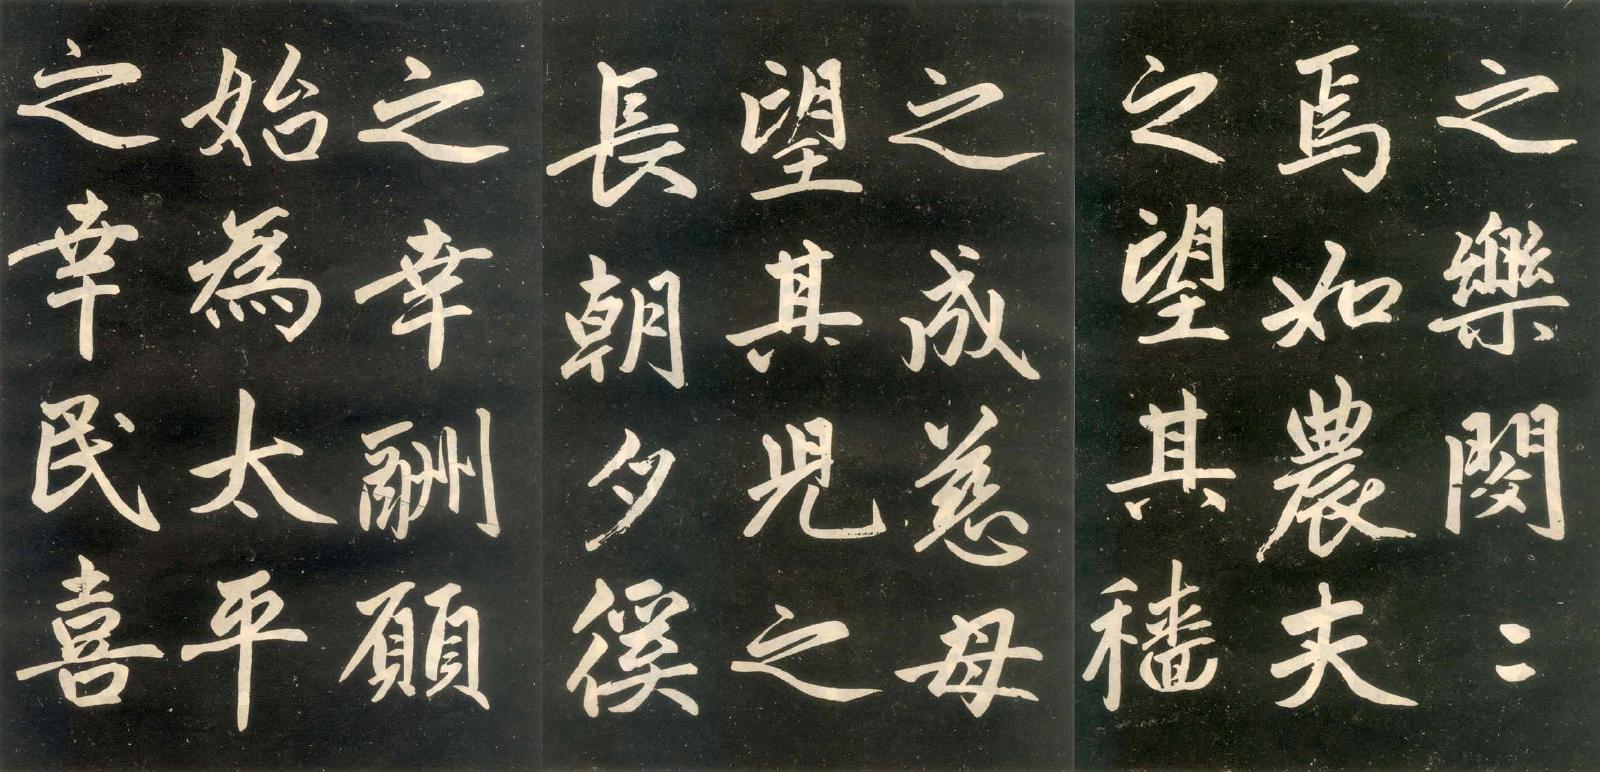 之樂閔〻
焉如農夫
之望其穡
之成慈母
望其児之
長朝夕徯
之幸酬願
始為太平
之幸民喜